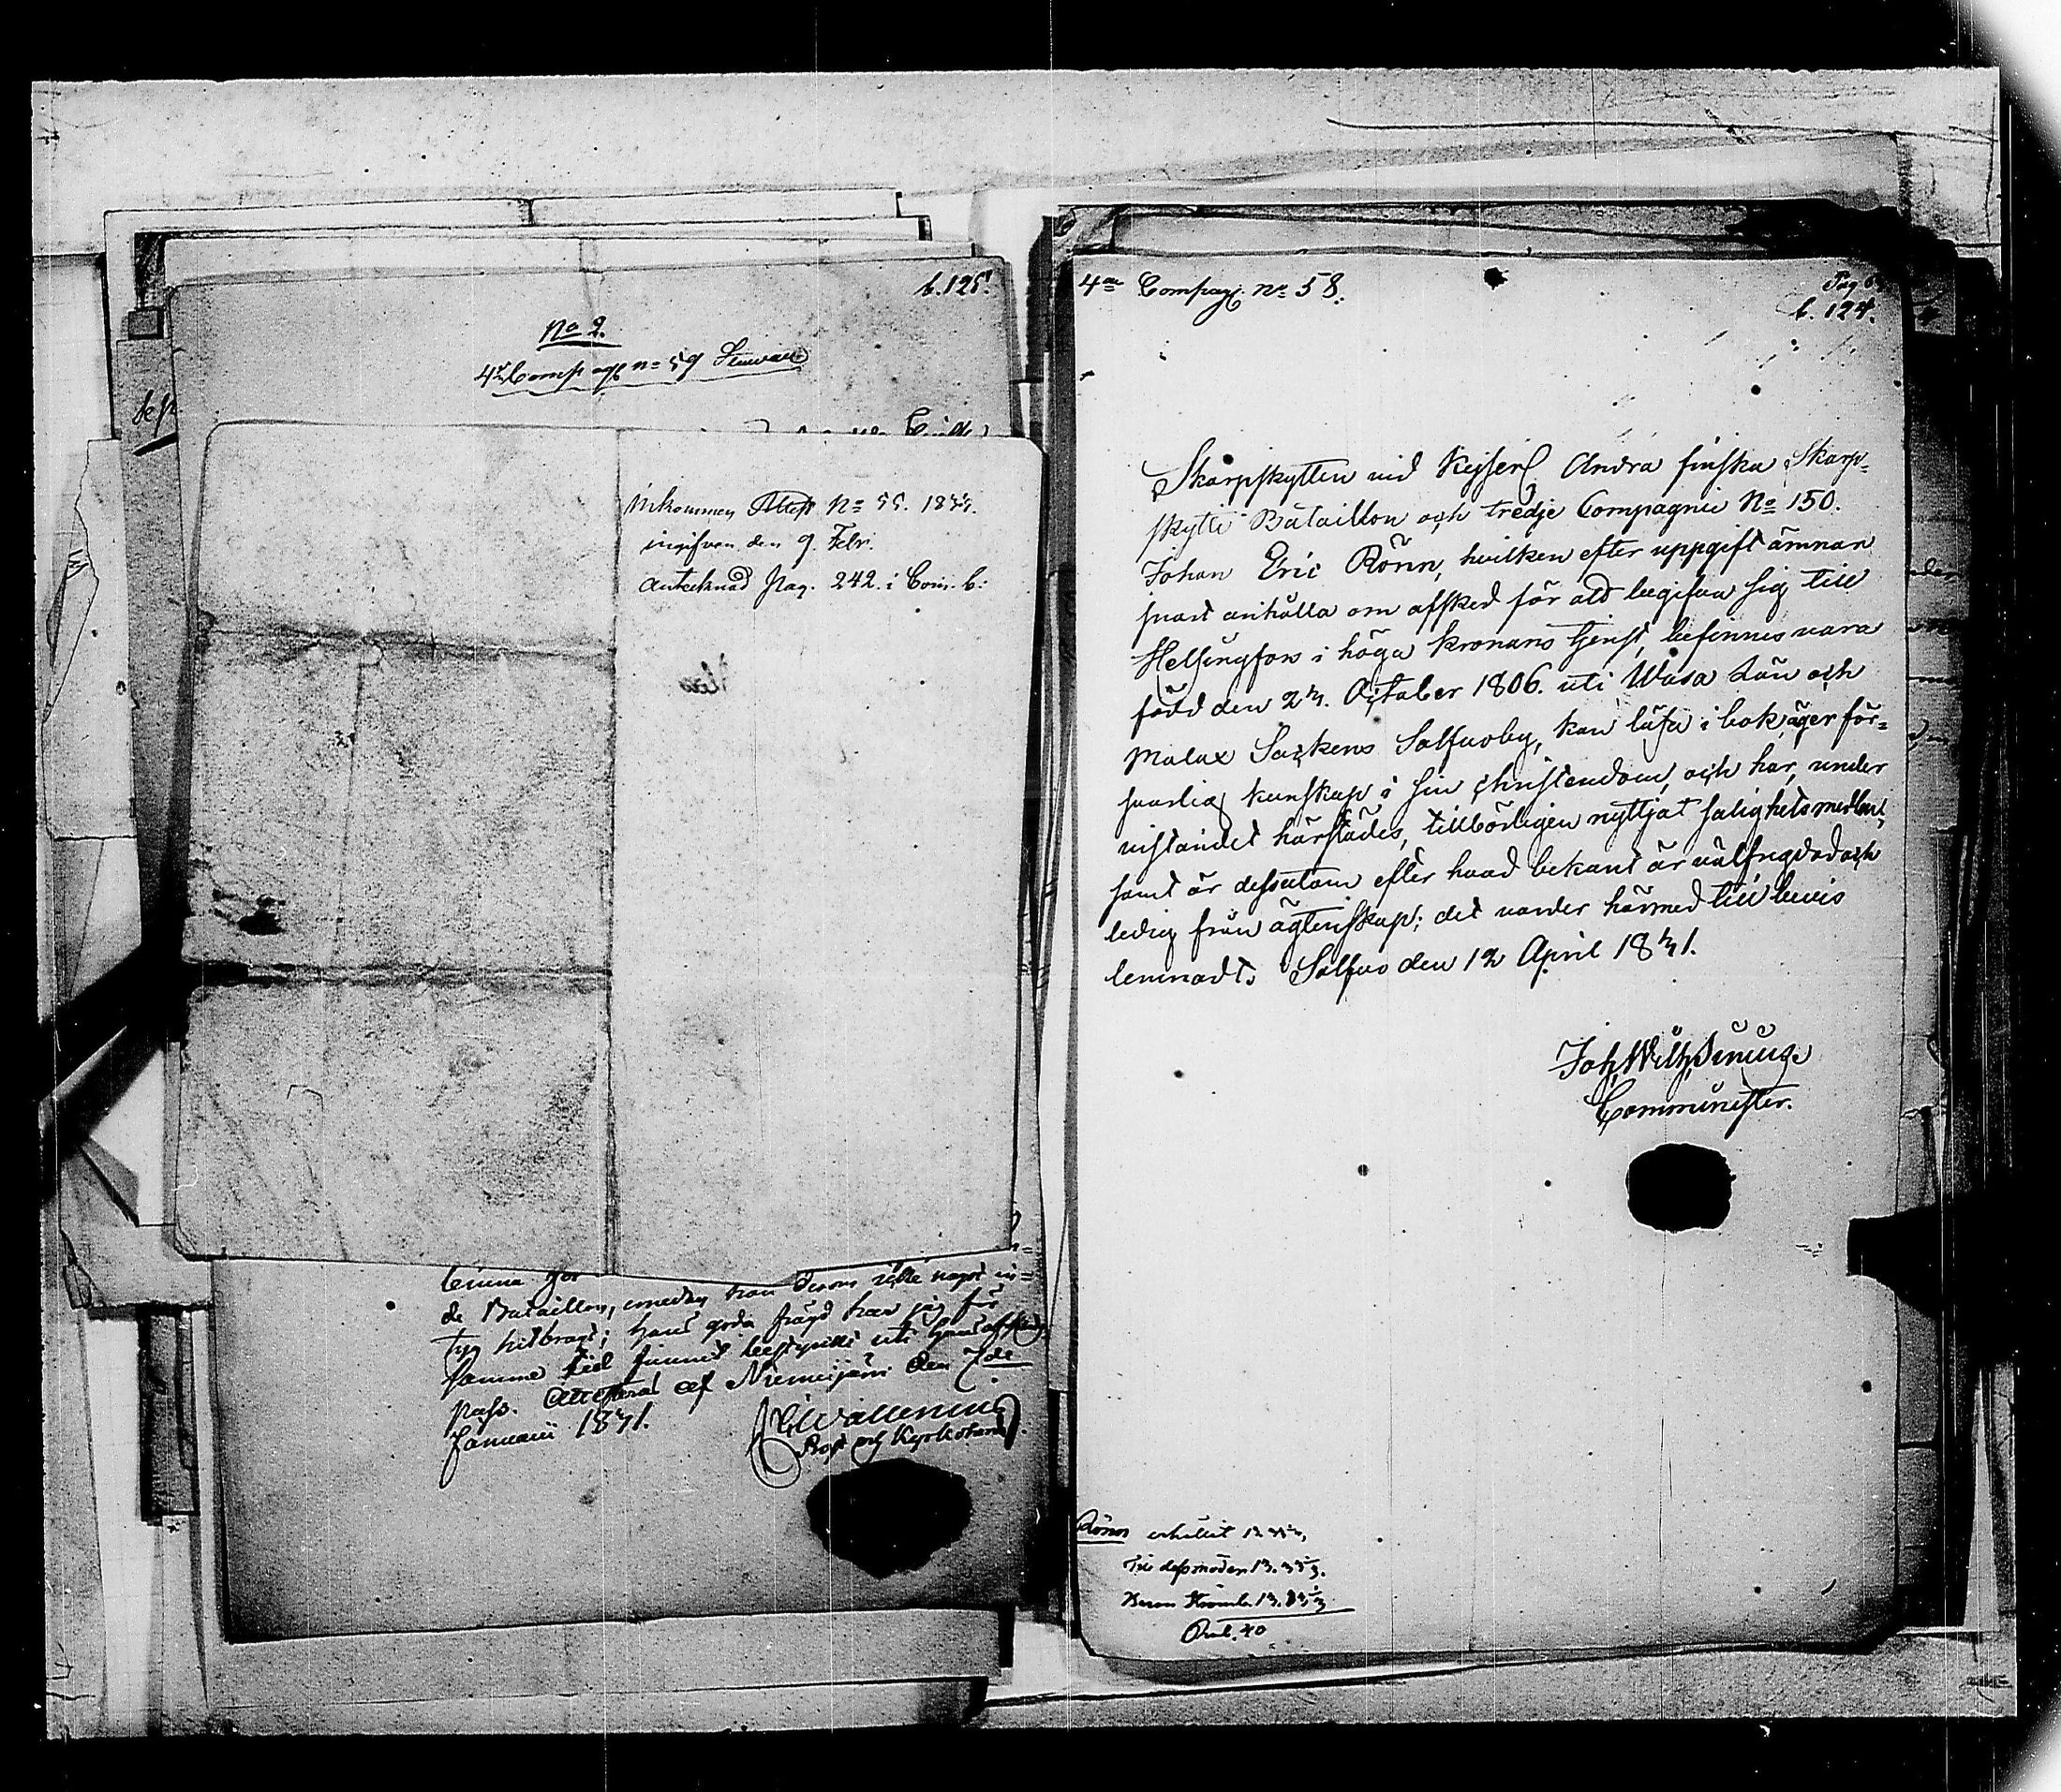 b. 125.
No 2.
4de Comp agt no 59
Inkommen Attest No 55. 1831.
ingifven den 9. Febr.
antecknad pag. 242. i Com. b:
de Bataillon, emedan han
tyg hitbragt; hans goda frägd har jag för
samma tid funnit bestyrkt uti hans afskeds
pass. Attesteras af Niemisjärvi den 7de
Januarii 1831.
Wallenius
Prost och Kyrkoherde
4de Compag: no 58.
Pag 6
b. 124.
Skarpskytten vid Kejserl Andra finska Skarp-
skytte Bataillon och tredje Compagnie No 150.
Johan Eric Rönn, hvilken efter uppgift ämnar
snart anhålla om afsked för att begifva sig till
Helsingfors i höga Kronans tjenst, befinnes vara
född den 23. October 1806. uti Wasa Län och
Malax Sockens Solfvoby, kan läsa i bok, äger för-
svarlig kunskap i sin christendom, och har, under
vistandet härstädes, tillbörligen nyttjat salighetsmedlen,
samt är dessutom efter hvad bekant är välfregdad och
ledig från ägtenskap; det varder härmed till bevis
lemnadt. Solfvo den 12 April 1831.
Joh. Wilh.
Comminister.
Rönn erhållit 13 33 1/3
Till dess moder 13. 33 1/3.
13. 33 1/3
Rub. 40